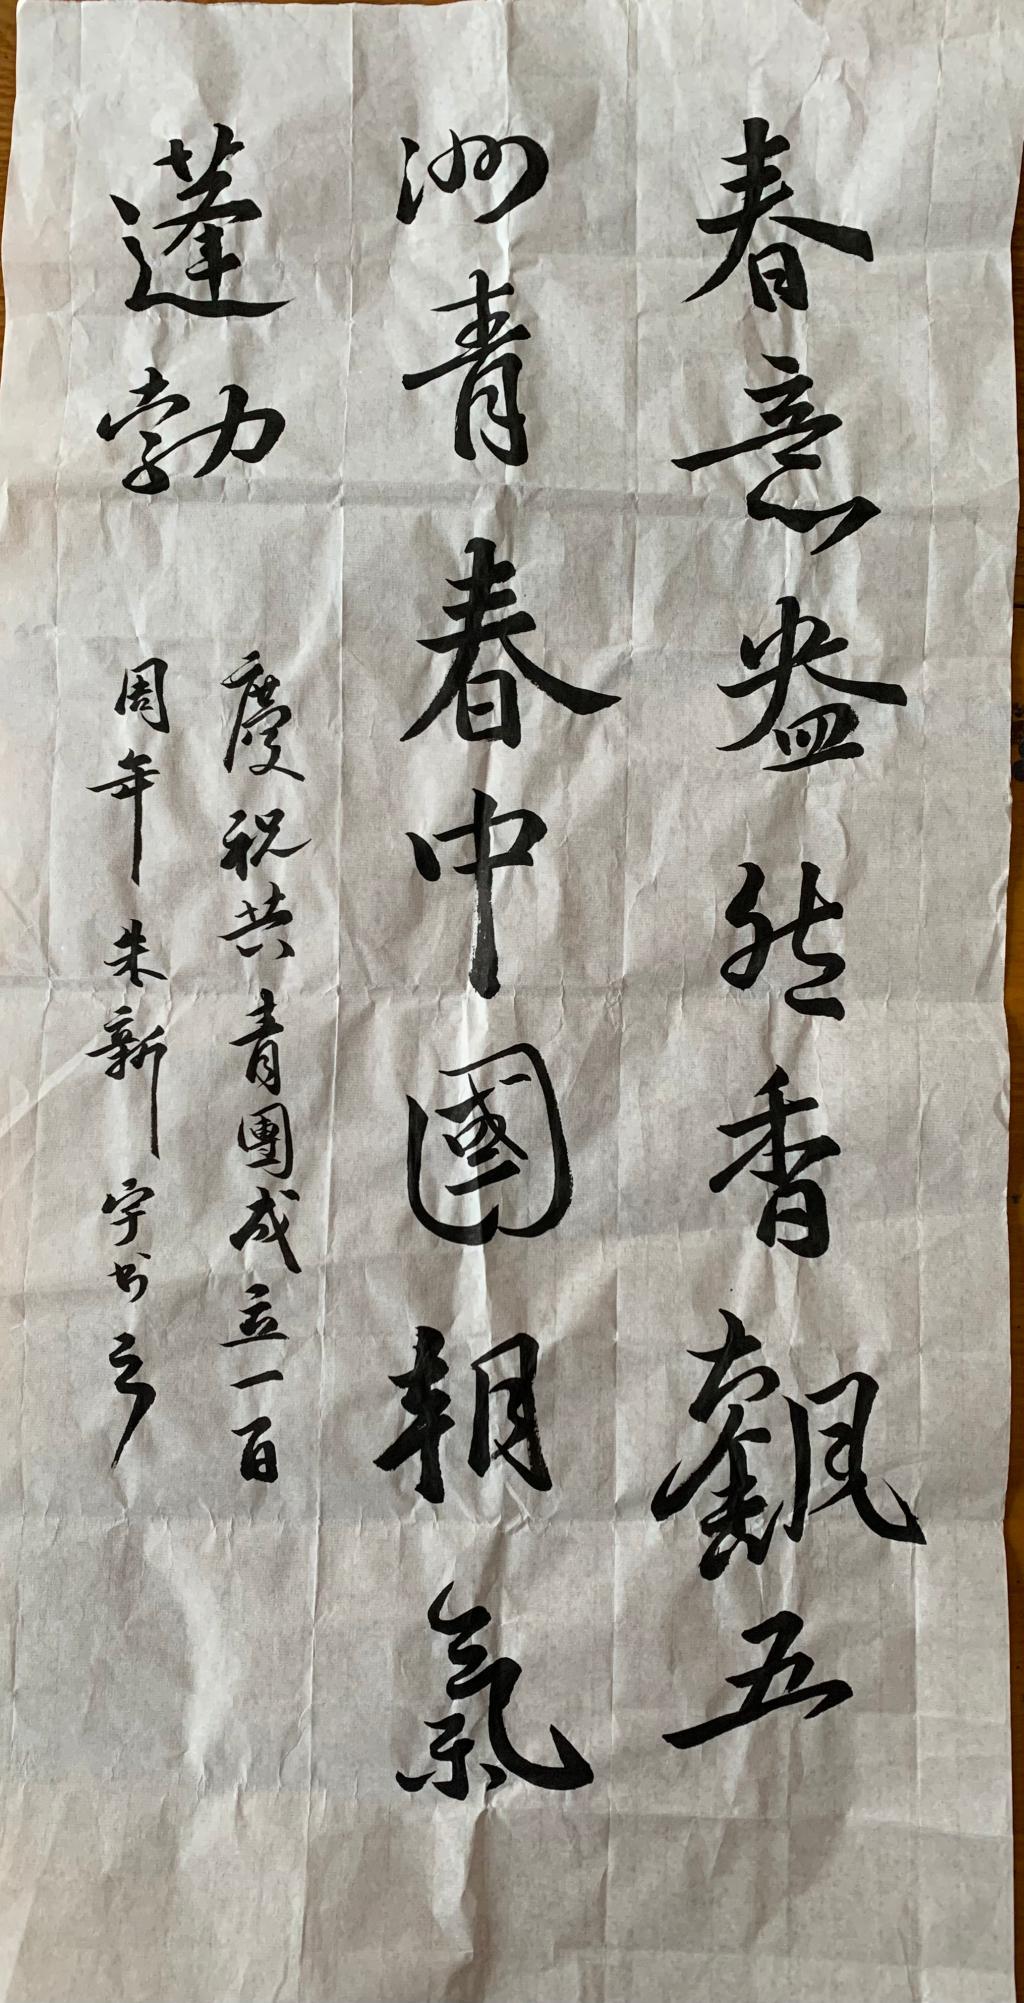 春意盎然香飄五
洲青春中國朝氣
蓬勃
慶祝共青團成立一百
周年朱新宇书